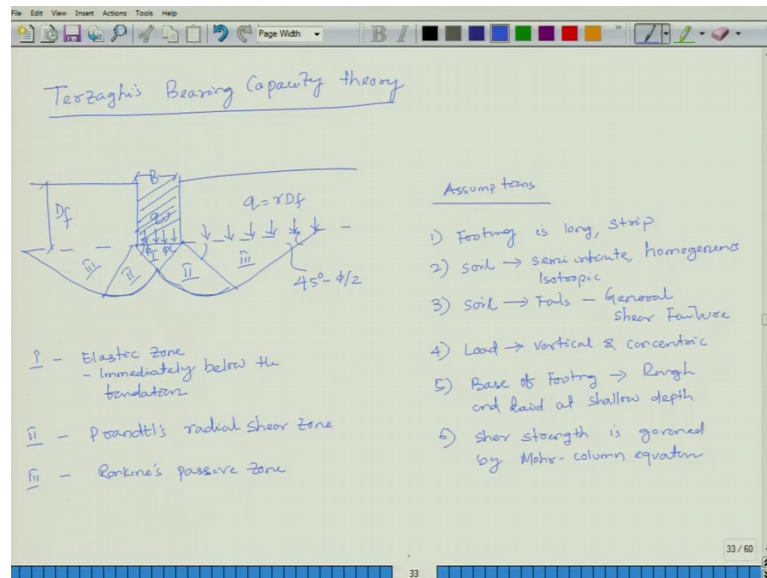 File Edit View Insert Actions Tools Help
Page Width
B I
Terzaghi's Bearing Capacity theory
B
Df
q = γDf
I
II
III
II
III
45° - φ/2
I - Elastic Zone
- Immediately below the
foundation
II - Prandtl's radial shear zone
III - Rankine's passive zone
Assumptions
1) Footing is long, strip
2) soil → semi infinite, homogenous
Isotropic
3) soil → Fails - General
shear Failure
4) Load → vertical & concentric
5) Base of Footing → Rough
and laid at shallow depth
6) shear strength is governed
by Mohr-column equation
33 / 60
33